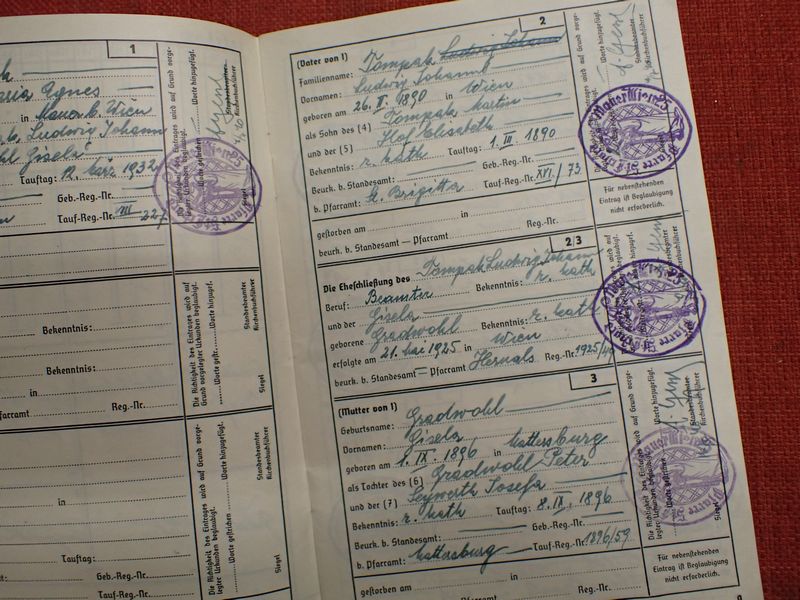 1
Agnes
in Mauer b. Wien
Ludwig Johann
Gisela
Tauftag: 12. März 1932
Geb.-Reg.-Nr.
Tauf-Reg.-Nr. VIII 227
Bekenntnis:
Bekenntnis:
in
Pfarramt Reg.-Nr.
in
Tauftag:
Geb.-Reg.-Nr.
Tauf-Reg.-Nr.
in
Die Richtigkeit des Eintrages wird auf Grund vorgelegter Urkunden beglaubigt.
Worte gestrichen
Worte hinzugefügt.
Standesbeamter
Kirchenbuchführer
Siegel
Die Richtigkeit des Eintrages wird auf Grund vorgelegter Urkunden beglaubigt.
Standesbeamter
Kirchenbuchführer
Siegel
Die Richtigkeit des Eintrages wird auf Grund vorgelegter Urkunden beglaubigt.
Worte gestrichen
Worte hinzugefügt.
Standesbeamter
Kirchenbuchführer
Siegel
2
(Vater von 1)
Familienname: Tompak Ludwig Johann
Vornamen: Ludwig Johann
geboren am 26. II. 1890 in Wien
als Sohn des (4) Tompak Martin
und der (5) Hof Elisabeth
Bekenntnis: r. kath Tauftag: 1. III. 1890
Beurk. b. Standesamt: Geb.-Reg.-Nr.
b. Pfarramt: St. Brigitta Tauf-Reg.-Nr. XVI/73
gestorben am in
beurk. b. Standesamt — Pfarramt Reg.-Nr.
Für nebenstehenden
Eintrag ist Beglaubigung
nicht erforderlich.
2/3
Die Eheschließung des Tompak Ludwig Johann
Beruf: Beamter Bekenntnis: r. kath
und der Gisela
geborene Gradwohl Bekenntnis: r. kath
erfolgte am 21. Mai 1925 in Wien
beurk. b. Standesamt — Pfarramt Hernals Reg.-Nr. 1925/
3
(Mutter von 1)
Geburtsname: Gradwohl
Vornamen: Gisela
geboren am 1. IX. 1896 in Mattersburg
als Tochter des (6) Gradwohl Peter
und der (7) Seywerth Josefa
Bekenntnis: r. kath Tauftag: 8. IX. 1896
Beurk. b. Standesamt: Geb.-Reg.-Nr.
b. Pfarramt: Mattersburg Tauf-Reg.-Nr. 1896/59
gestorben am in
Für nebenstehenden
Eintrag ist Beglaubigung
nicht erforderlich.